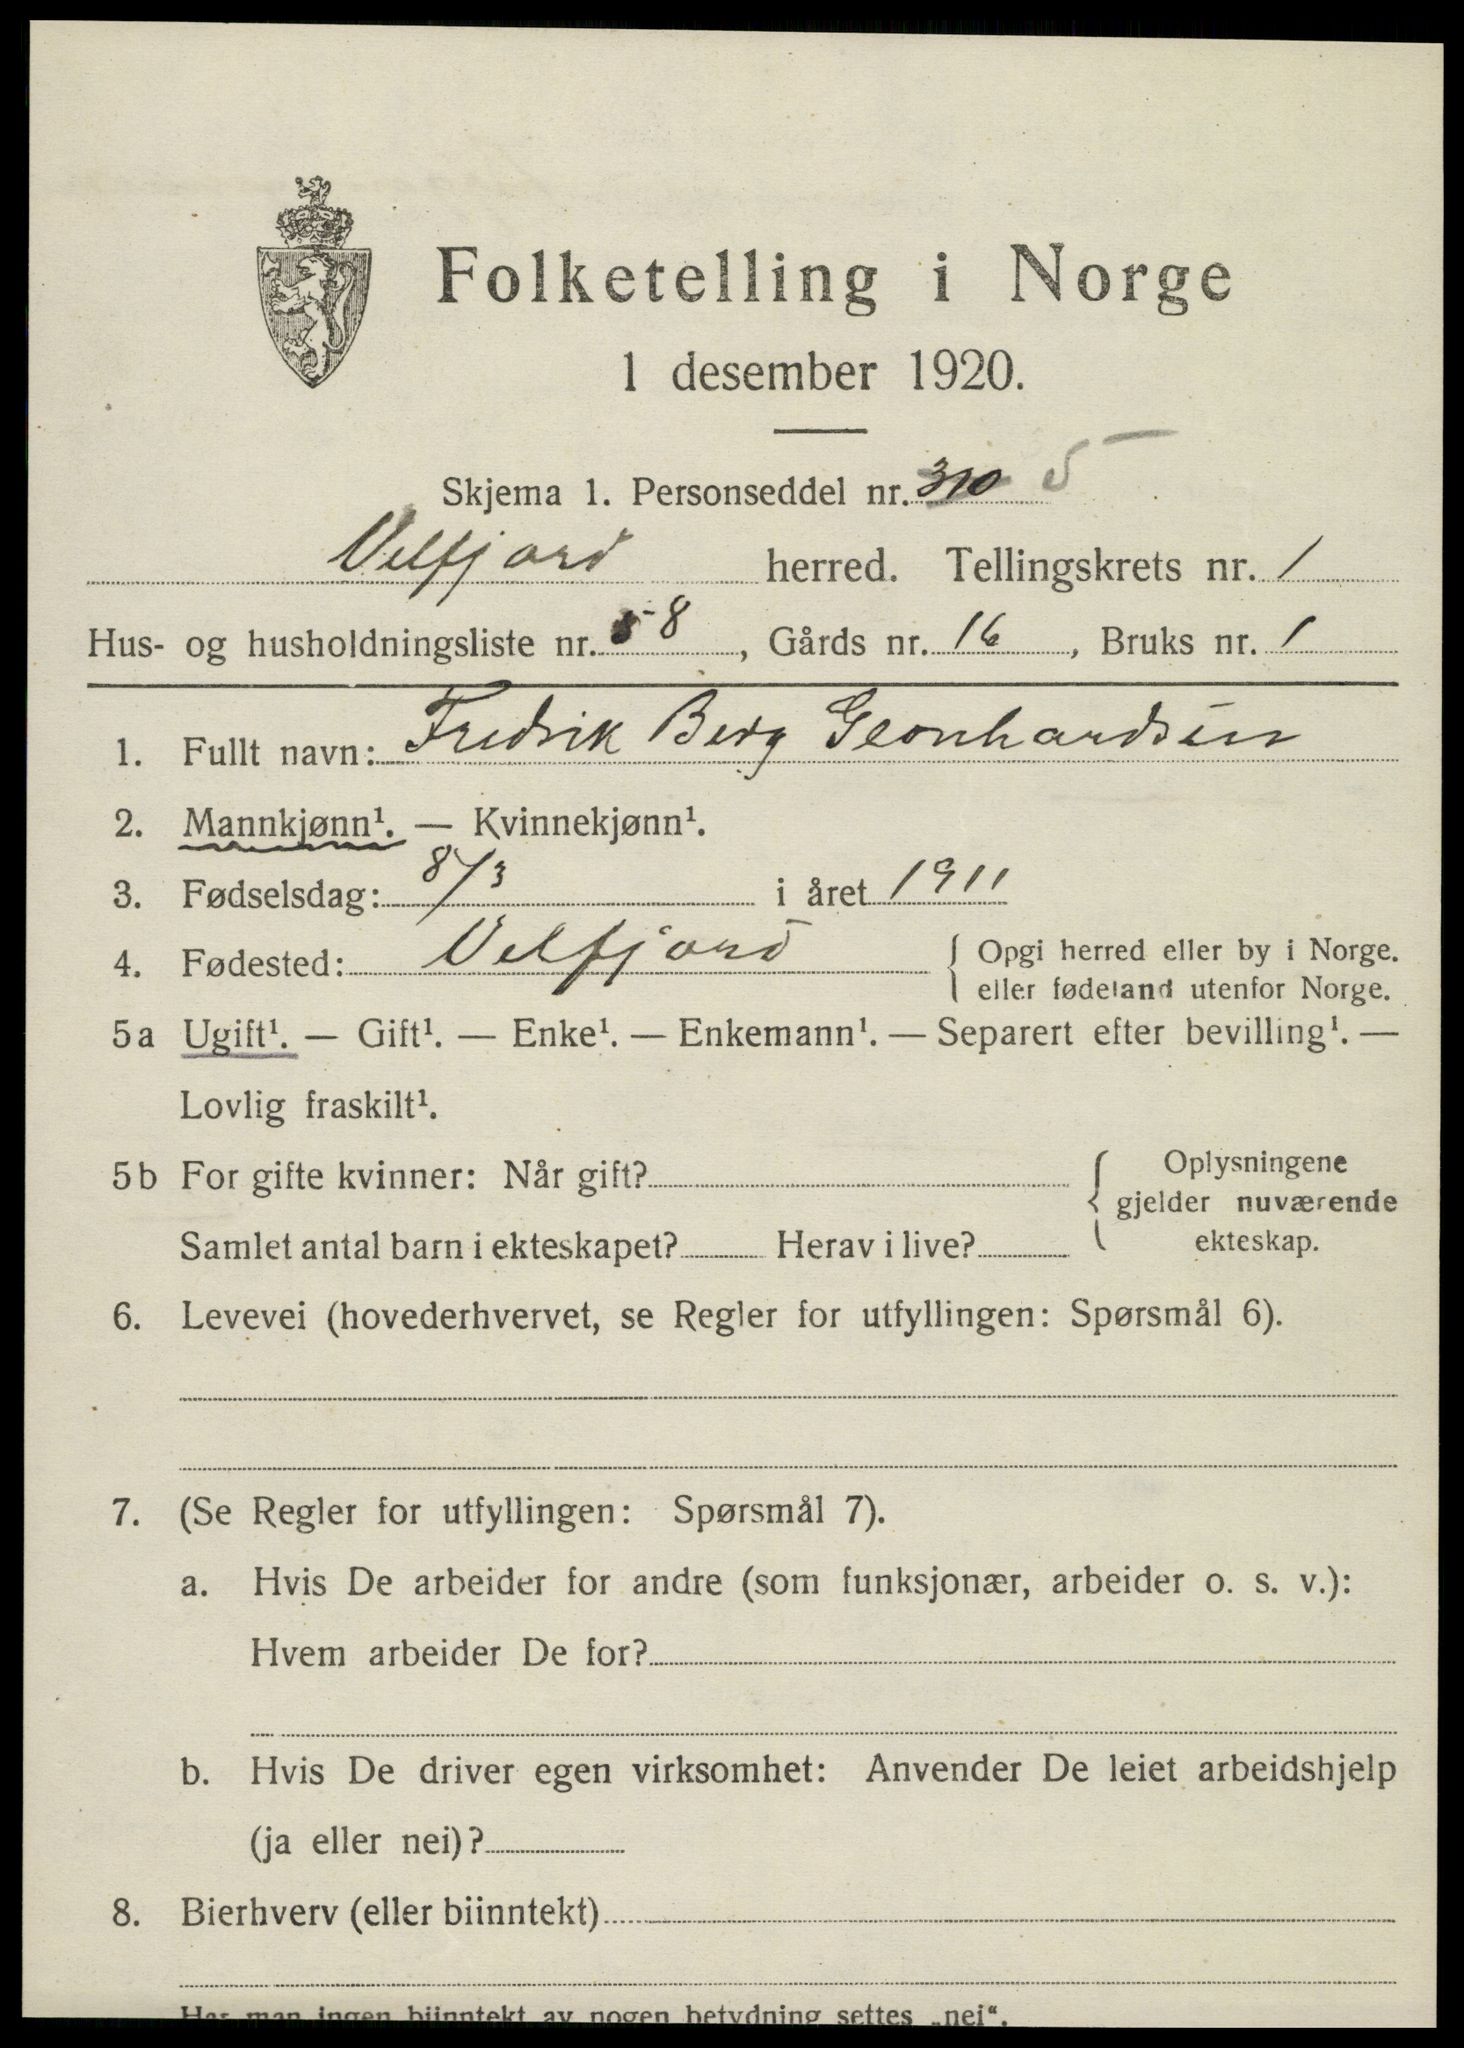 Folketelling i Norge
1 desember 1920.
Skjema 1. Personseddel nr. 310 5
Velfjord herred. Tellingskrets nr. 1
Hus- og husholdningsliste nr. 58, Gårds nr. 16, Bruks nr. 1
1. Fullt navn: Fredrik Berg Leonhardsen
2. Mannkjønn¹. — Kvinnekjønn¹.
3. Fødselsdag: 8/3 i året 1911
4. Fødested: Velfjord { Opgi herred eller by i Norge.
eller fødeland utenfor Norge.
5a Ugift¹. — Gift¹. — Enke¹. — Enkemann¹. — Separert efter bevilling¹. —
Lovlig fraskilt¹.
5b For gifte kvinner: Når gift?
Samlet antal barn i ekteskapet? Herav i live?
{ Oplysningene
gjelder nuværende
ekteskap.
6. Levevei (hovederhvervet, se Regler for utfyllingen: Spørsmål 6).
7. (Se Regler for utfyllingen: Spørsmål 7).
a. Hvis De arbeider for andre (som funksjonær, arbeider o. s. v.):
Hvem arbeider De for?
b. Hvis De driver egen virksomhet: Anvender De leiet arbeidshjelp
(ja eller nei)?
8. Bierhverv (eller biinntekt)
Har man ingen biinntekt av nogen betydning settes „nei“.